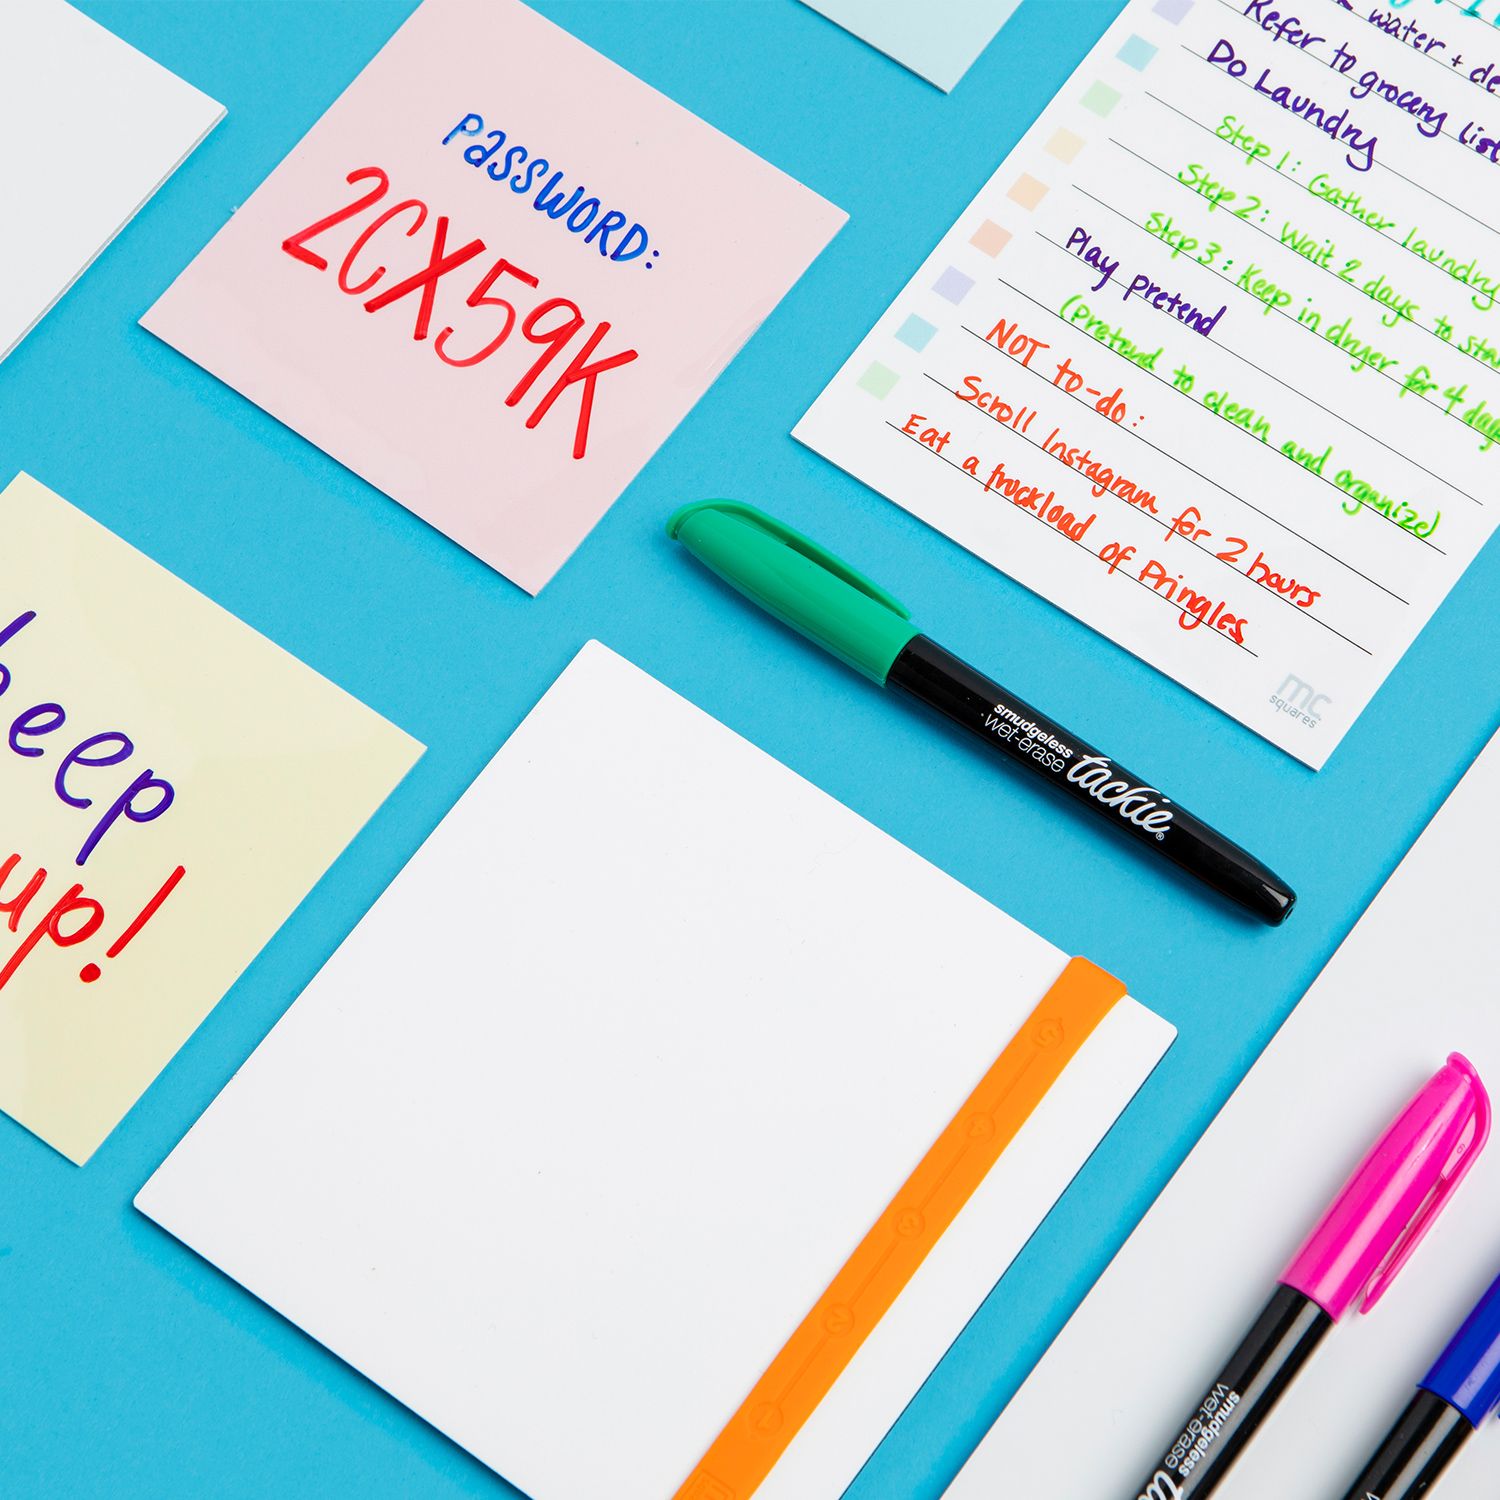 PASSWORD:
2CX59K
water + de
Refer to grocery list
Do Laundry
Step 1: Gather laundry
Step 2: Wait 2 days to star
Step 3: Keep in dryer for 4 days
Play pretend
(Pretend to clean and organize)
NOT to-do:
Scroll Instagram for 2 hours
Eat a truckload of Pringles
mc
squares
heep
up!
smudgeless
wet-erase
tackie
5
4
3
2
1
smudgeless
wet-erase